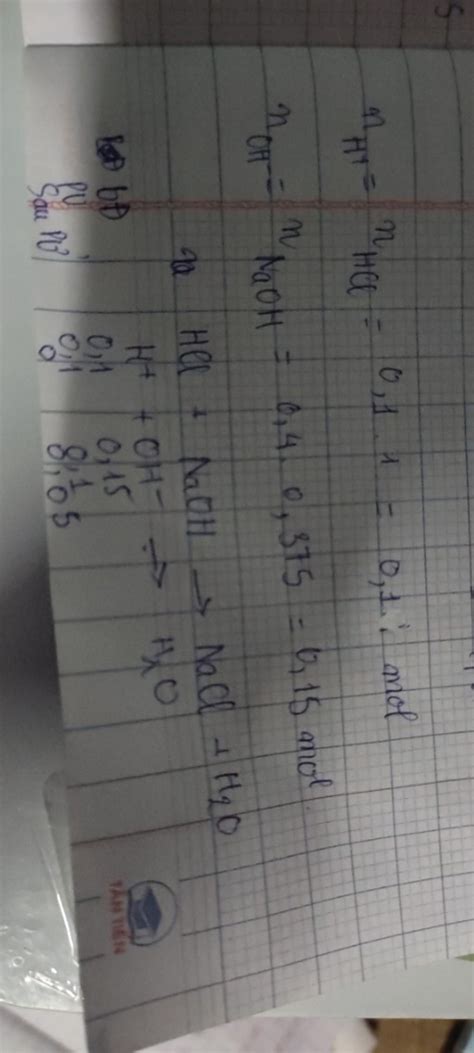 5
n_H+ = n_HCl = 0,1 . 1 = 0,1 mol
n_OH- = n_NaOH = 0,4 . 0,375 = 0,15 mol.
HCl + NaOH → NaCl + H₂O
H⁺ + OH⁻ → H₂O
bđ 0,1 0,15
pứ 0,1 0,1
Sau pứ 0 0,05
TÂN TIẾN